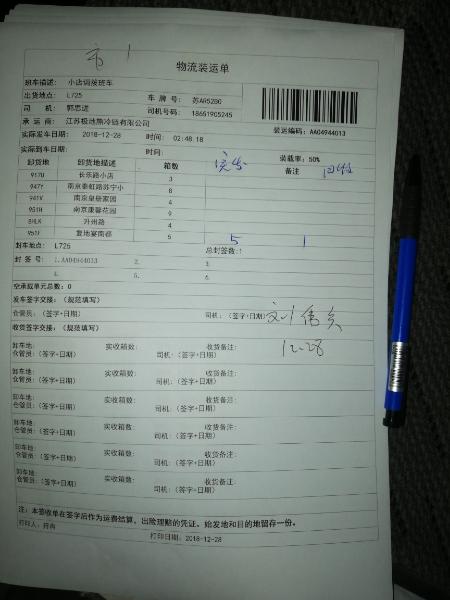 市1
物流装运单
班车描述: 小店调拨班车
出货地点: L725 车 牌 号: 苏AR52B0
司 机: 郭忠进 司机号码: 18651905245
承 运 商: 江苏极地熊冷链有限公司 装运编码: AA04944013
实际发车日期: 2018-12-28 时间: 02:48.18
实际到车日期: 时间: 装载率: 50%
卸货地 卸货地描述 箱数 备注
917U 长乐路小店 3
947Y 南京泰虹路苏宁小 6
941V 南京皇册家园 4
951H 南京康馨花园 9
8HLK 升州路 4
951F 复地宴南都 5
5 1
封车地点: L725 总封签数: 1
封 签 号: 1.AA04944013 2. 3.
4. 5. 6.
空承载单元总数: 0
发车签字交接: (规范填写)
仓管员: (签字+日期) 司机: (签字+日期)
12-28
收货签字交接: (规范填写)
卸车地: 实收箱数: 收货备注:
仓管员: (签字+日期) 司机: (签字+日期)
卸车地: 实收箱数: 收货备注:
仓管员: (签字+日期) 司机: (签字+日期)
卸车地: 实收箱数: 收货备注:
仓管员: (签字+日期) 司机: (签字+日期)
卸车地: 实收箱数: 收货备注:
仓管员: (签字+日期) 司机: (签字+日期)
卸车地: 实收箱数: 收货备注:
仓管员: (签字+日期) 司机: (签字+日期)
卸车地: 实收箱数: 收货备注:
仓管员: (签字+日期) 司机: (签字+日期)
注: 本签收单在签字后作为运费结算、出险理赔的凭证。始发地和目的地留存一份。
打印人:
打印日期: 2018-12-28